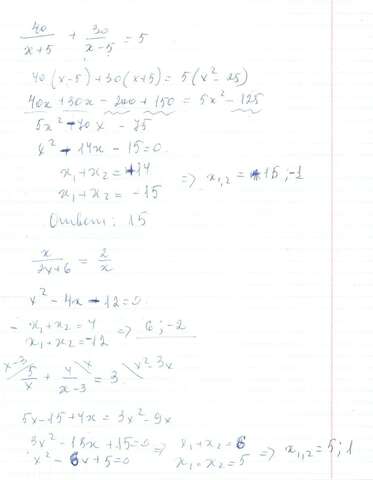 40/(x+5) + 30/(x-5) = 5
40(x-5)+30(x+5) = 5(x²-25)
40x+30x-200+150 = 5x²-125
5x²-70x-75
x²-14x-15=0
x₁+x₂=14
x₁+x₂=-15 => x₁,₂ = 15;-1
Ответ: 15
x/(2x+6) = 2/x
x²-4x-12=0
x₁+x₂=4
x₁+x₂=-12 => 6;-2
x-3\ 5/x + x\ 4/(x-3) = 3 \x²-3x
5x-15+4x=3x²-9x
3x²-18x+15=0 => x₁+x₂=6
x²-6x+5=0 x₁×x₂=5 => x₁,₂=5;1